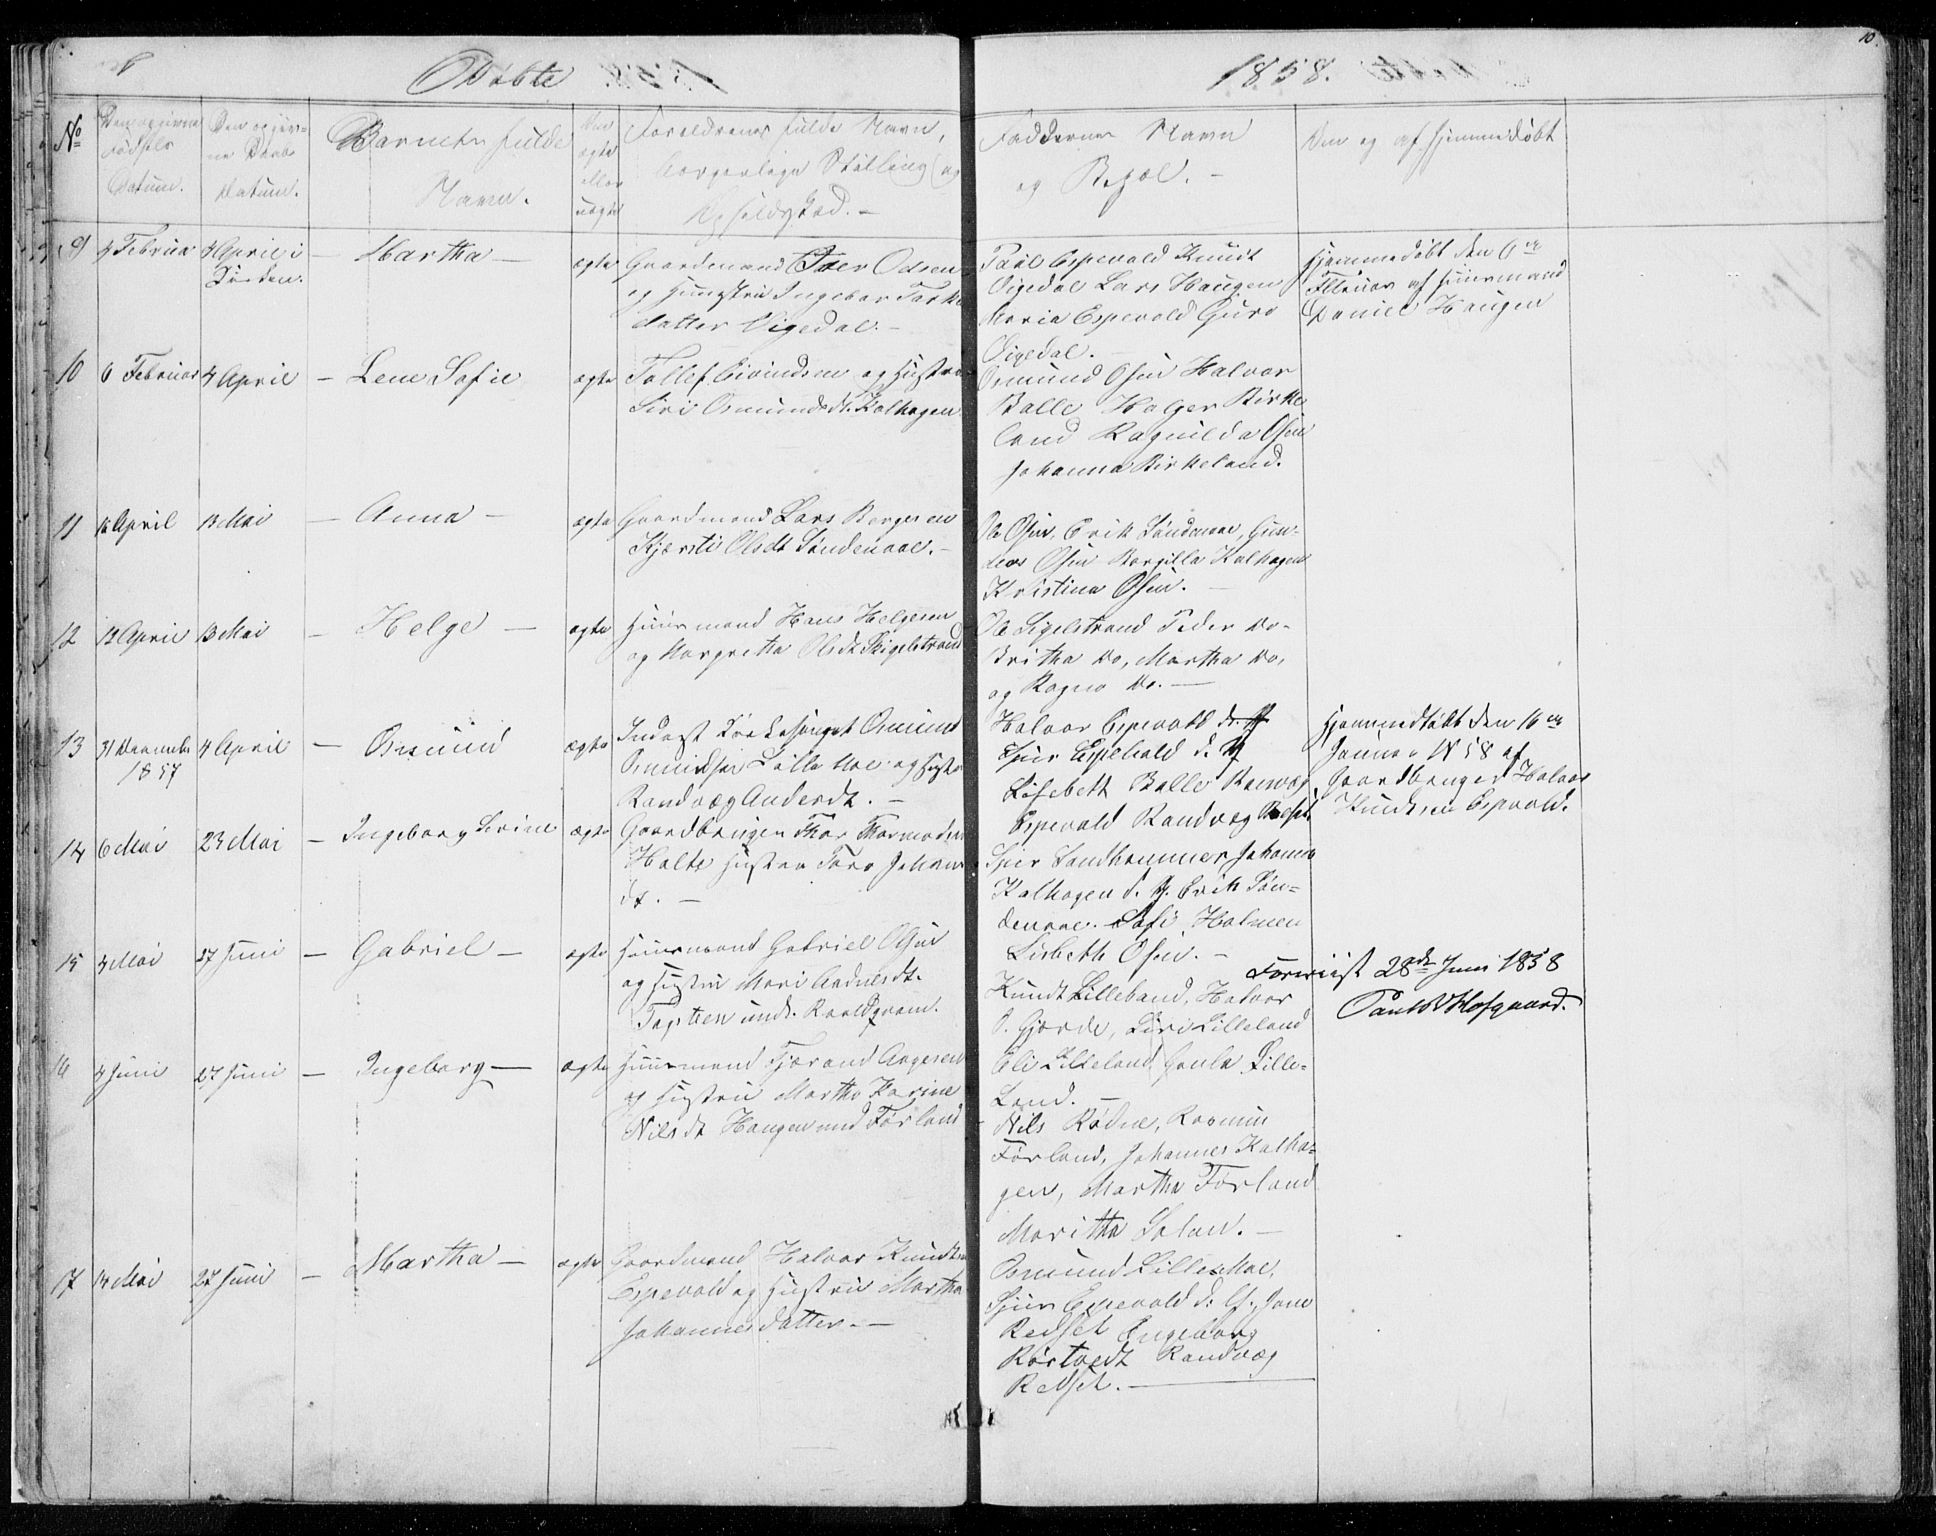 Døbte 1858.
10.
No
Den opgivne Fødsels Datum.
Den opgivne Daabs Datum.
Barnets fulde Navn.
Om ægte eller uægte
Forældrenes fulde Navn, borgerlige Stilling og Opholdssted. -
Faddernes Navn og Bopæl. -
Om og af hjemmedøbt
9 4 Februar 4 April i Kirken. - Martha - ægte
Gaardmand Iver Olsen
og Hustru Ingebor
datter Vigedal. -
Paul Espevold Knudt
Vigedal Lars Haugen
Maria Espevold Guro
Vigedal.
Hjemmedøbt den 6te
Februar af Huusmand
Daniel Haugen
10 6 Februar 4 April - Lene Sofie ægte
Tollef Eivindsen og Hustru
Siri Osmundsdt. Kalhagen
Osmund Osen Halvor
Balle Holger Birke
land Ragnilda Osen
Johanna Birkeland.
11 April 13 Mai - Anna - ægte
Gaardmand Lars Bergesen
Kjersti Olsdt Søndenaae. -
Ole Osen, Erik Søndenaae, Gun-
Osen Borgilla Kalhagen
Kristina Osen. -
12 12 April 13 Mai - Helge - ægte
Huusmand Hans Helgesen
og Margretha Olsdt Sigelstrand
Ole Sigelstrand Peder do-
Britha do, Martha do,
og Ragna do. -
13 31 Decembr 1857 4 April - Osmund ægte
Inderst Osmund
Osmundsen Lille Moe og Hustru
Randvæg Andersdt. -
Halvor Espevold
Sjur Espevold d. y
Lisebett Balle
Espevold Randvæg Redset.
Hjemmedøbt den 16de
Januar 1858 af
Gaardbruger Halvor
Knudsen Espevold.
14 6 Mai 23 Mai - Ingeborg Serine ægte
Gaardbruger Thor Thormodsen
Holte Hustru Tora Johans
dt. -
Sjur Sandhammer, Johanne
Kalhagen d. y. Erik Søn-
denaae. Sofi Holmen
Lisbeth Osen. -
15 4 Mai 27 Juni - Gabriel - ægte
Huusmand Gabriel Olsen
og Hustru Mari Aadnesdt.
und. Roaldqvam.
Knudt Lilleland, Halvor
O. Gjerde, Siri Lilleland
Eli Lilleland Lille-
Land. -
Foreviist 28de Juni 1858
Hofgaard.
16 4 Juni 27 Juni - Ingeborg - ægte
Huusmand Tjerand Aagesen
og Hustru Martha Karine
Nilsdt Haugen und Førland
Nils Rødne, Rasmus
Førland, Johannes Kalha-
gen, Martha Førland
Maritha Solan. -
17 14 Mai 27 Juni - Martha - ægte
Gaardmand Halvor Knudtsen
Espevold og Hustru Martha
Johannesdatter. -
Osmund Lille Moe,
Sjur Espevold d:
Redset Ingeborg
Rørtvedt Randvæg
Redset. -